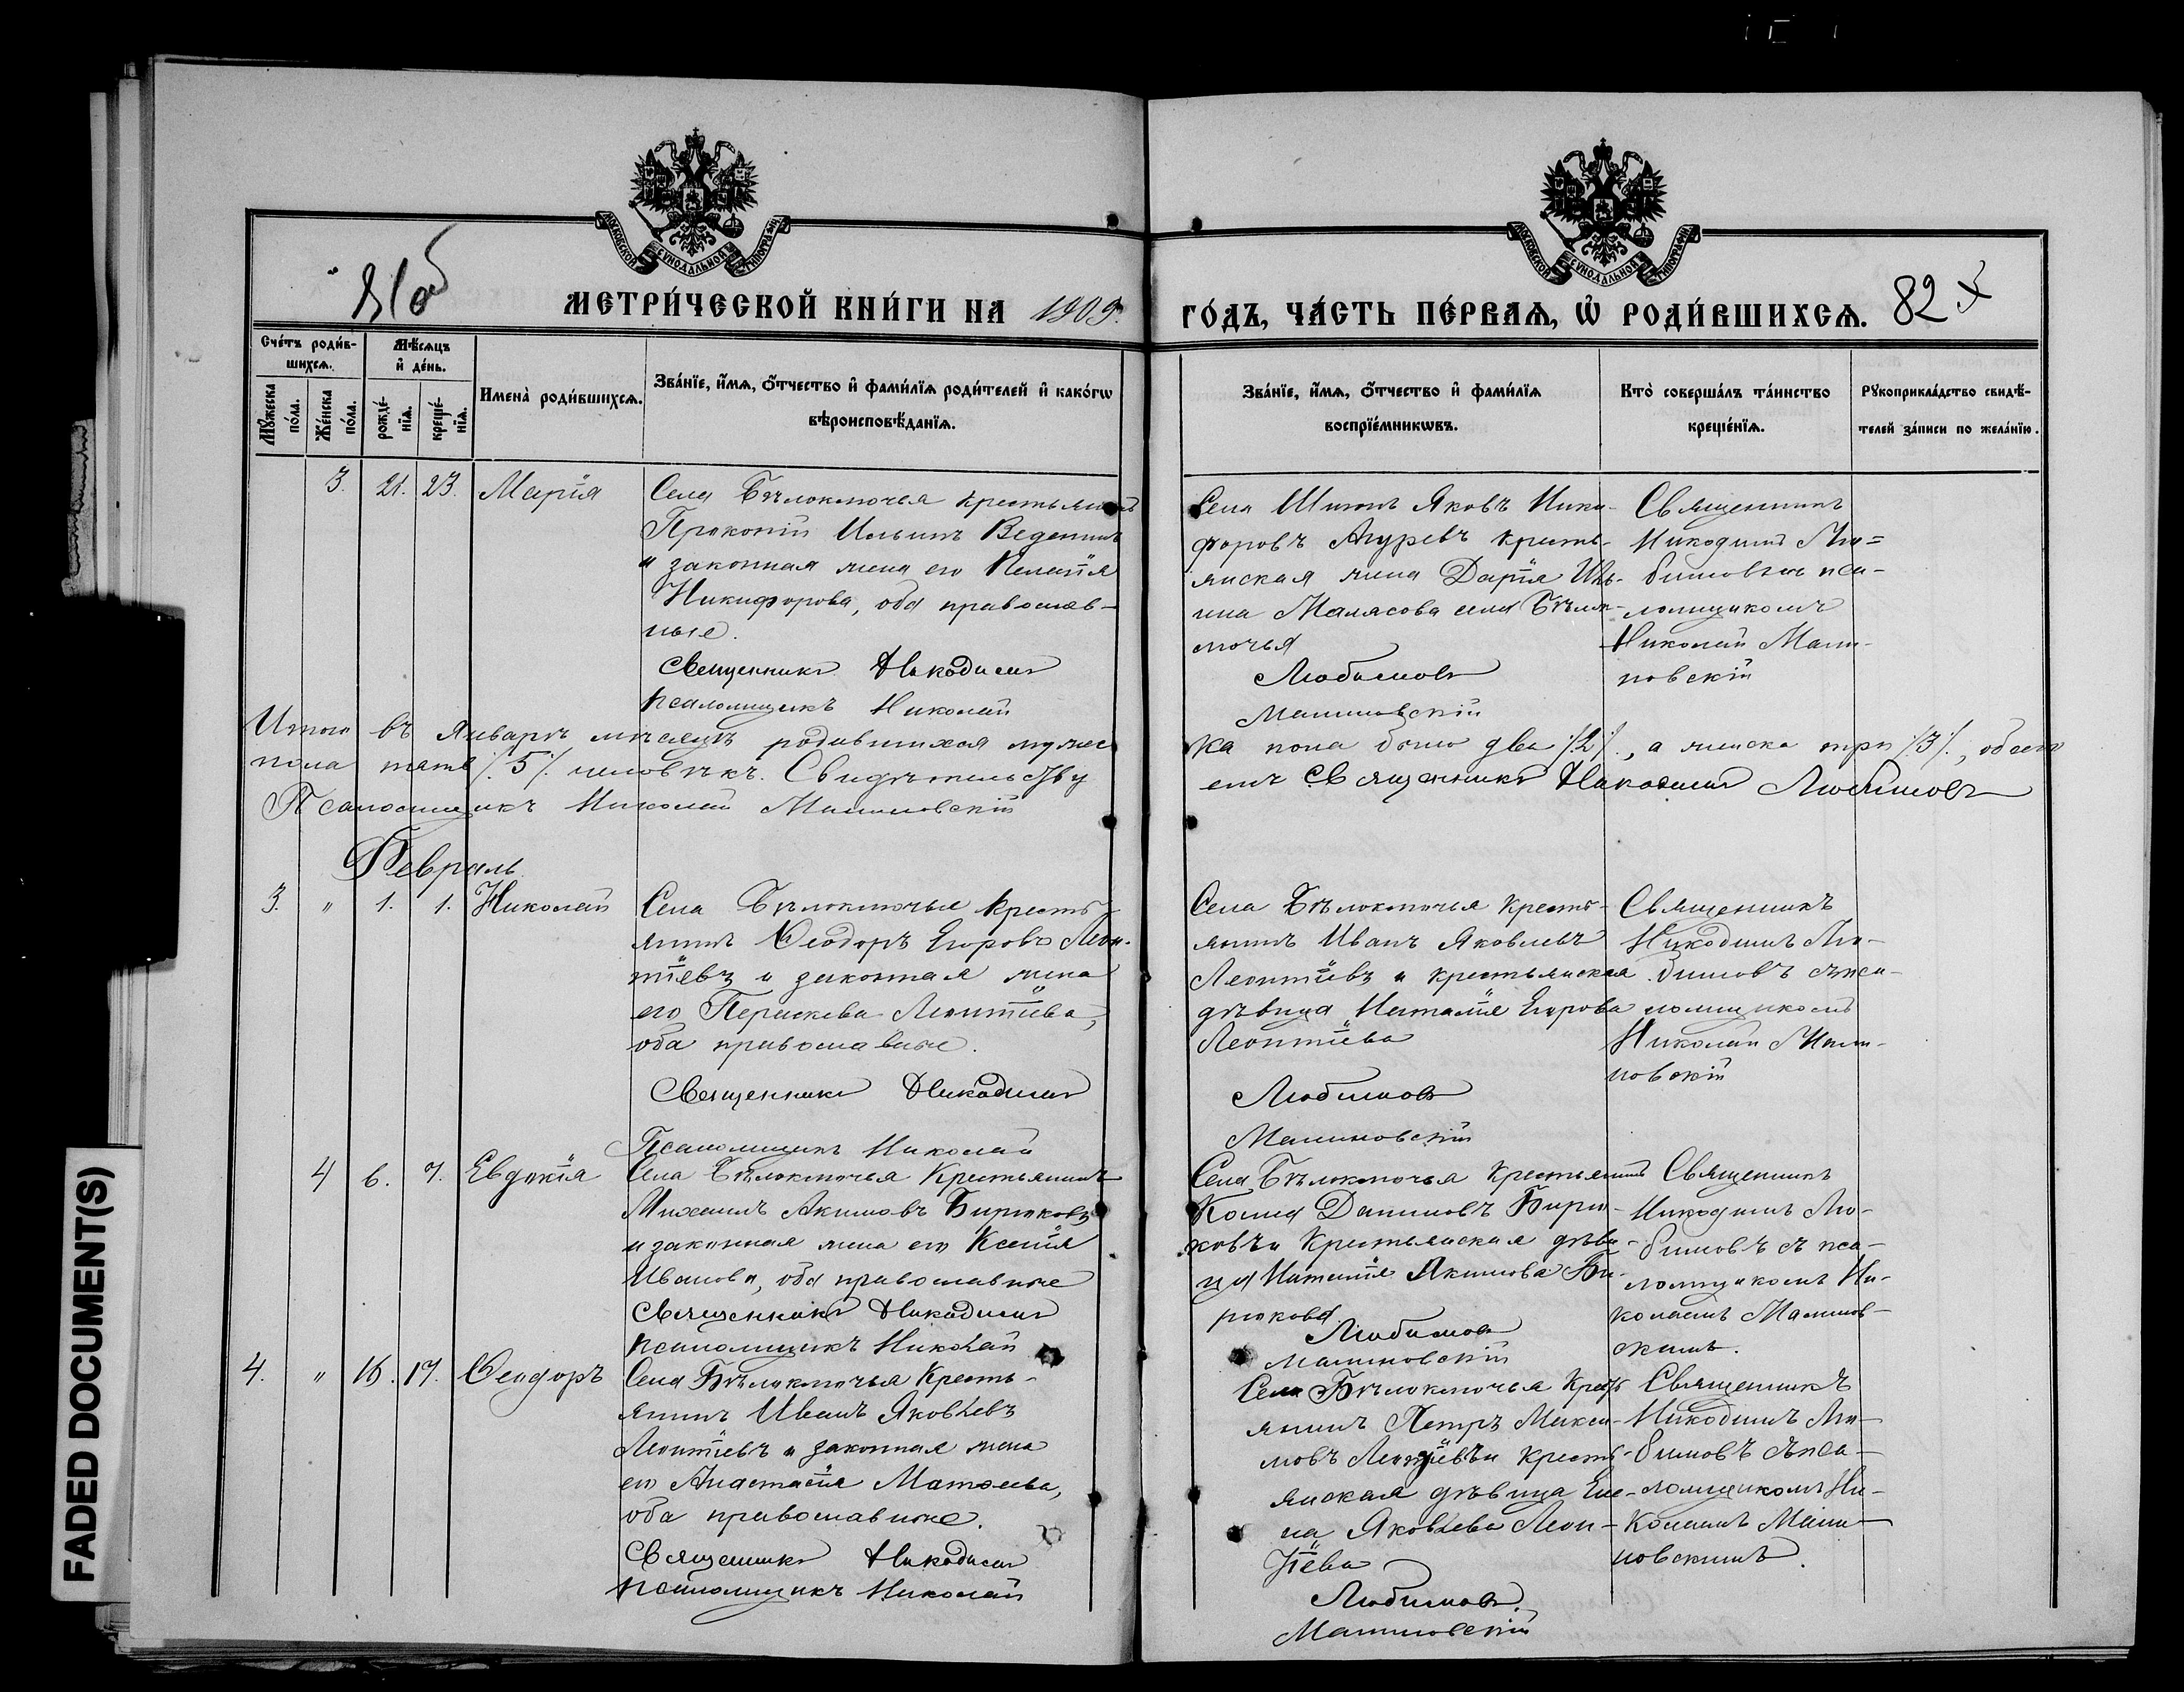 МОСКОВСКОЙ СѴНОДАЛЬНОЙ ТИПОГРАФІИ
МОСКОВСКОЙ СѴНОДАЛЬНОЙ ТИПОГРАФІИ
81об
МЕТРИ́ЧЕСКОЙ КНИ́ГИ НА 1909.
ГО́ДЪ, ЧА́СТЬ ПЕ́РВАѦ, Ѡ҆ РОДИ́ВШИХСѦ. 82
Сче́тъ роди́в-
шихсѧ.
Мѣ́сѧцъ
и҆ де́нь.
Мꙋ́жеска
по́ла.
Же́нска
по́ла.
рожде́-
нїѧ.
креще́-
нїѧ.
Имена̀ роди́вшихсѧ.
Зва́нїе, и҆́мѧ, ѻ҆́тчество и҆ фами́лїѧ роди́телей и҆ како́гѡ
вѣроисповѣ́данїѧ.
Зва́нїе, и҆́мѧ, ѻ҆́тчество и҆ фами́лїѧ
воспрїе́мникѡвъ.
Кто̀ соверша́лъ та́инство
креще́нїѧ.
Рꙋкоприкла́дство свидѣ́-
телей за́писи по жела́нїю.
3. 21. 23. Марія
Села Бѣлоключья крестьянинъ
Прокопій Ильинъ Веденинъ
и законная жена его Пелагія
Никифорова, оба православ-
ные.
Священникъ Никодимъ
Псаломщикъ Николай
Села Яковъ Ники-
форовъ кресть-
янская жена Дарія Иль-
ина Малясова села Бѣлок-
лючья
Любимовъ
Малиновскій
Священникъ
Никодимъ Лю=
бимовъ пса-
ломщикомъ
Николай Мали-
новскій
Итого въ Январѣ мѣсяцѣ родившихся мужес
ка пола было два /2/., а женска три /3/., обоего
пола пять /5/ человѣкъ. Свидѣтельству
емъ Священникъ Никодимъ Любимовъ
Псаломщикъ Николай Малиновскій
Февраль
3. " 1. 1. Николай
Села Бѣлоключья кресть-
янинъ Ѳеодоръ Егоровъ Леон-
тіевъ и законная жена
его Параскева Леонтіева,
оба православные.
Священникъ Никодимъ
Псаломщикъ Николай
Села Бѣлоключья кресть-
янинъ Иванъ Яковлевъ
Леонтіевъ и крестьянская
дѣвица Наталія Егорова
Леонтіева
Любимовъ
Малиновскій
Священникъ
Никодимъ Лю-
бимовъ съ пса-
ломщикомъ
Николай Мали-
новскій
4 6. 7. Евдокія
Села Бѣлоключья Крестьянинъ
Михаилъ Акимовъ Бирюковъ
и законная жена его Ксенія
Иванова, оба православные
Священникъ Никодимъ
Псаломщикъ Николай
Села Бѣлоключья крестьянинъ
Косма Даниловъ Бирю-
ковъ и Крестьянская дѣви-
ца Наталія Акимова Би-
рюкова.
Любимовъ
Малиновскій
Священникъ
Никодимъ Лю-
бимовъ съ пса-
ломщикомъ Ни-
колаемъ Малинов-
скимъ.
4. " 16. 17. Ѳеодоръ
Села Бѣлоключья Кресть-
янинъ Иванъ Яковлевъ
Леонтіевъ и законная жена
его Анастасія Матѳеева,
оба православные.
Священникъ Никодимъ
Псаломщикъ Николай
Села Бѣлоключья Кресть
янинъ Петръ Макси-
мовъ Леонтіевъ и кресть-
янская дѣвица Еле-
на Яковлева Леон-
тіева
Любимовъ.
Малиновскій
Священникъ
Никодимъ Лю-
бимовъ съ пса-
ломщикомъ Ни-
колаемъ Мали-
новскимъ.
FADED DOCUMENT(S)